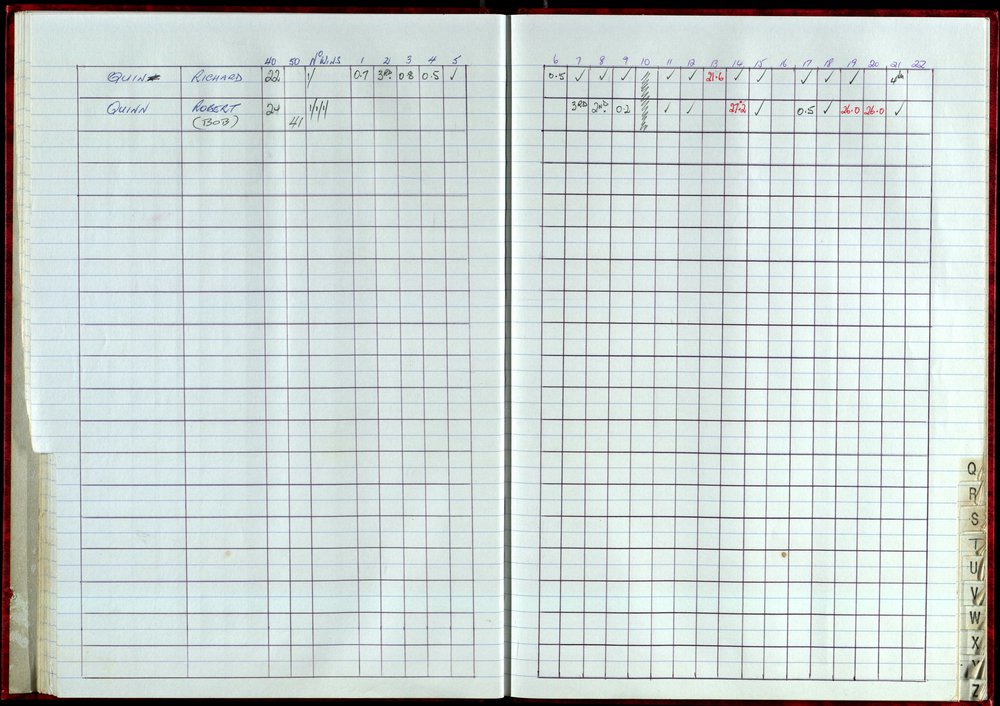 40 50 No WINS 1 2 3 4 5 6 7 8 9 10 11 12 13 14 15 16 17 18 19 20 21 22
QUIN RICHARD 22 / 0.7 3RD 0.8 0.5 ✓ 0.5 ✓ ✓ ✓ ✓ ✓ 21.6 ✓ ✓ ✓ ✓ ✓ 4th
QUINN ROBERT 24 //// 3RD 2ND 0.2 ✓ ✓ 27.2 ✓ 0.5 ✓ 26.0 26.0 ✓
(BOB) 41
Q
R
S
T
U
V
W
X
Y
Z